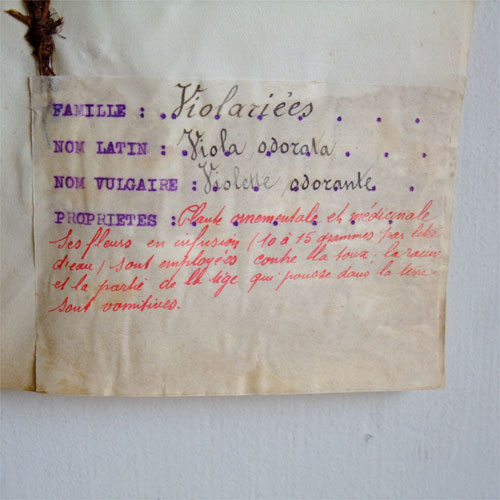 FAMILLE : Violariées
NOM LATIN : Viola odorata
NOM VULGAIRE : Violette odorante
PROPRIETES : Plante ornementale et médicinale
Ses fleurs en infusion (10 à 15 grammes par litre
d'eau) sont employées contre la toux ; la racine
et la partie de la tige qui pousse dans la terre
sont vomitives.